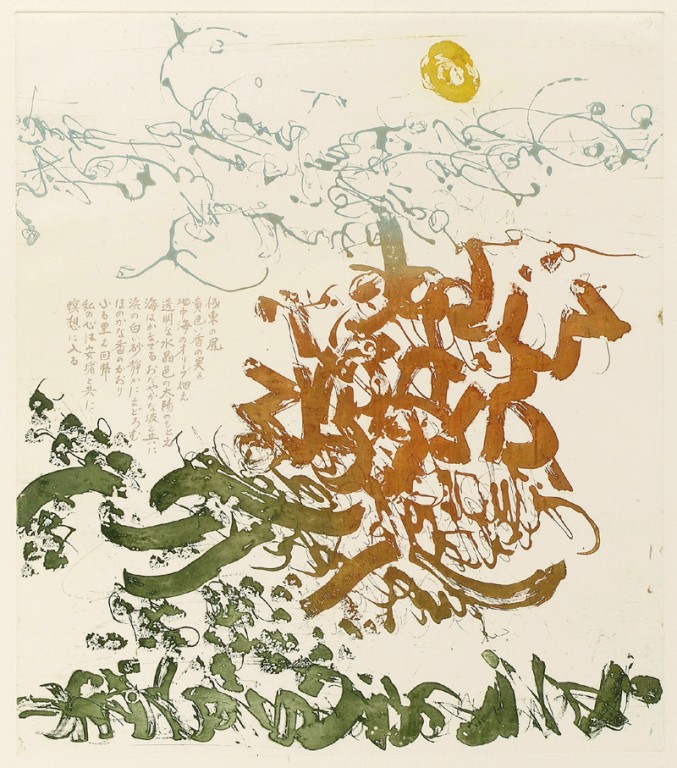 極東の風
黄色い杏の実る
地中海のオリーブ畑え
透明な水晶色の太陽のもとえ
海はかなでるおだやかな波と共に
浜の白い砂静かにまどろむ
ほのかな香のかおり
ふる里え回帰
私の心は安宿と共に
瞑想に入る